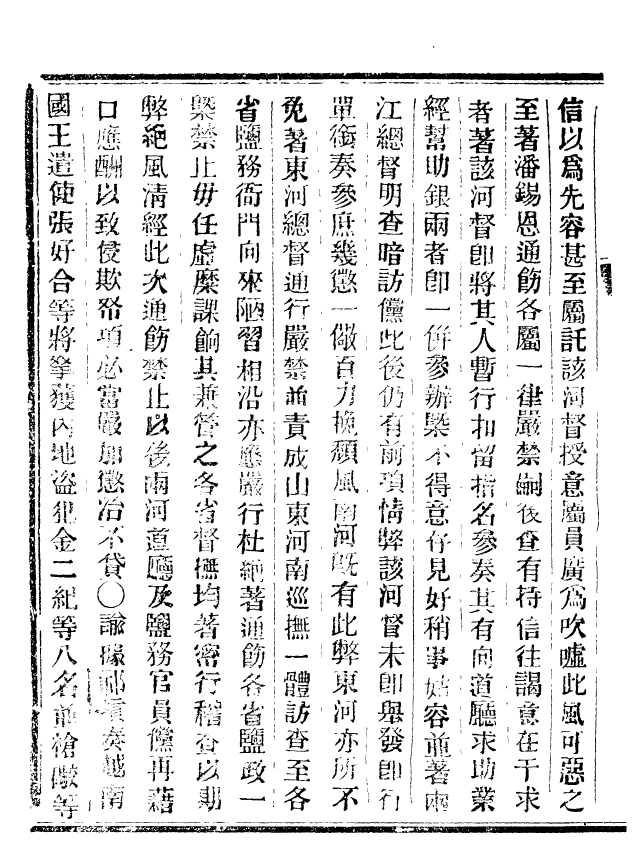 信以爲先容甚至屬託該河督授意屬員廣爲吹噓此風可惡之
至著潘錫恩通飭各屬一律嚴禁嗣後查有持信往謁意在干求
者著該河督卽將其人暫行扣留指名參奏其有向道廳求助業
經幫助銀兩者卽一併參辦槩不得意存見好稍事姑容並著兩
江總督明查暗訪儻此後仍有前項情弊該河督未卽舉發卽行
單銜奏參庶幾懲一儆百力挽頹風南河旣有此弊東河亦所不
免著東河總督通行嚴禁並責成山東河南巡撫一體訪查至各
省鹽務衙門向來陋習相沿亦應嚴行杜絕著通飭各省鹽政一
槩禁止毋任虛糜課餉其兼管之各省督撫均著密行稽查以期
弊絕風清經此次通飭禁止以後兩河道廳及鹽務官員儻再藉
口應酬以致侵欺帑項必當嚴加懲治不貸〇諭據祁𡎴奏越南
國王遣使張好合等將拏獲內地盜犯金二紀等八名並槍礮等